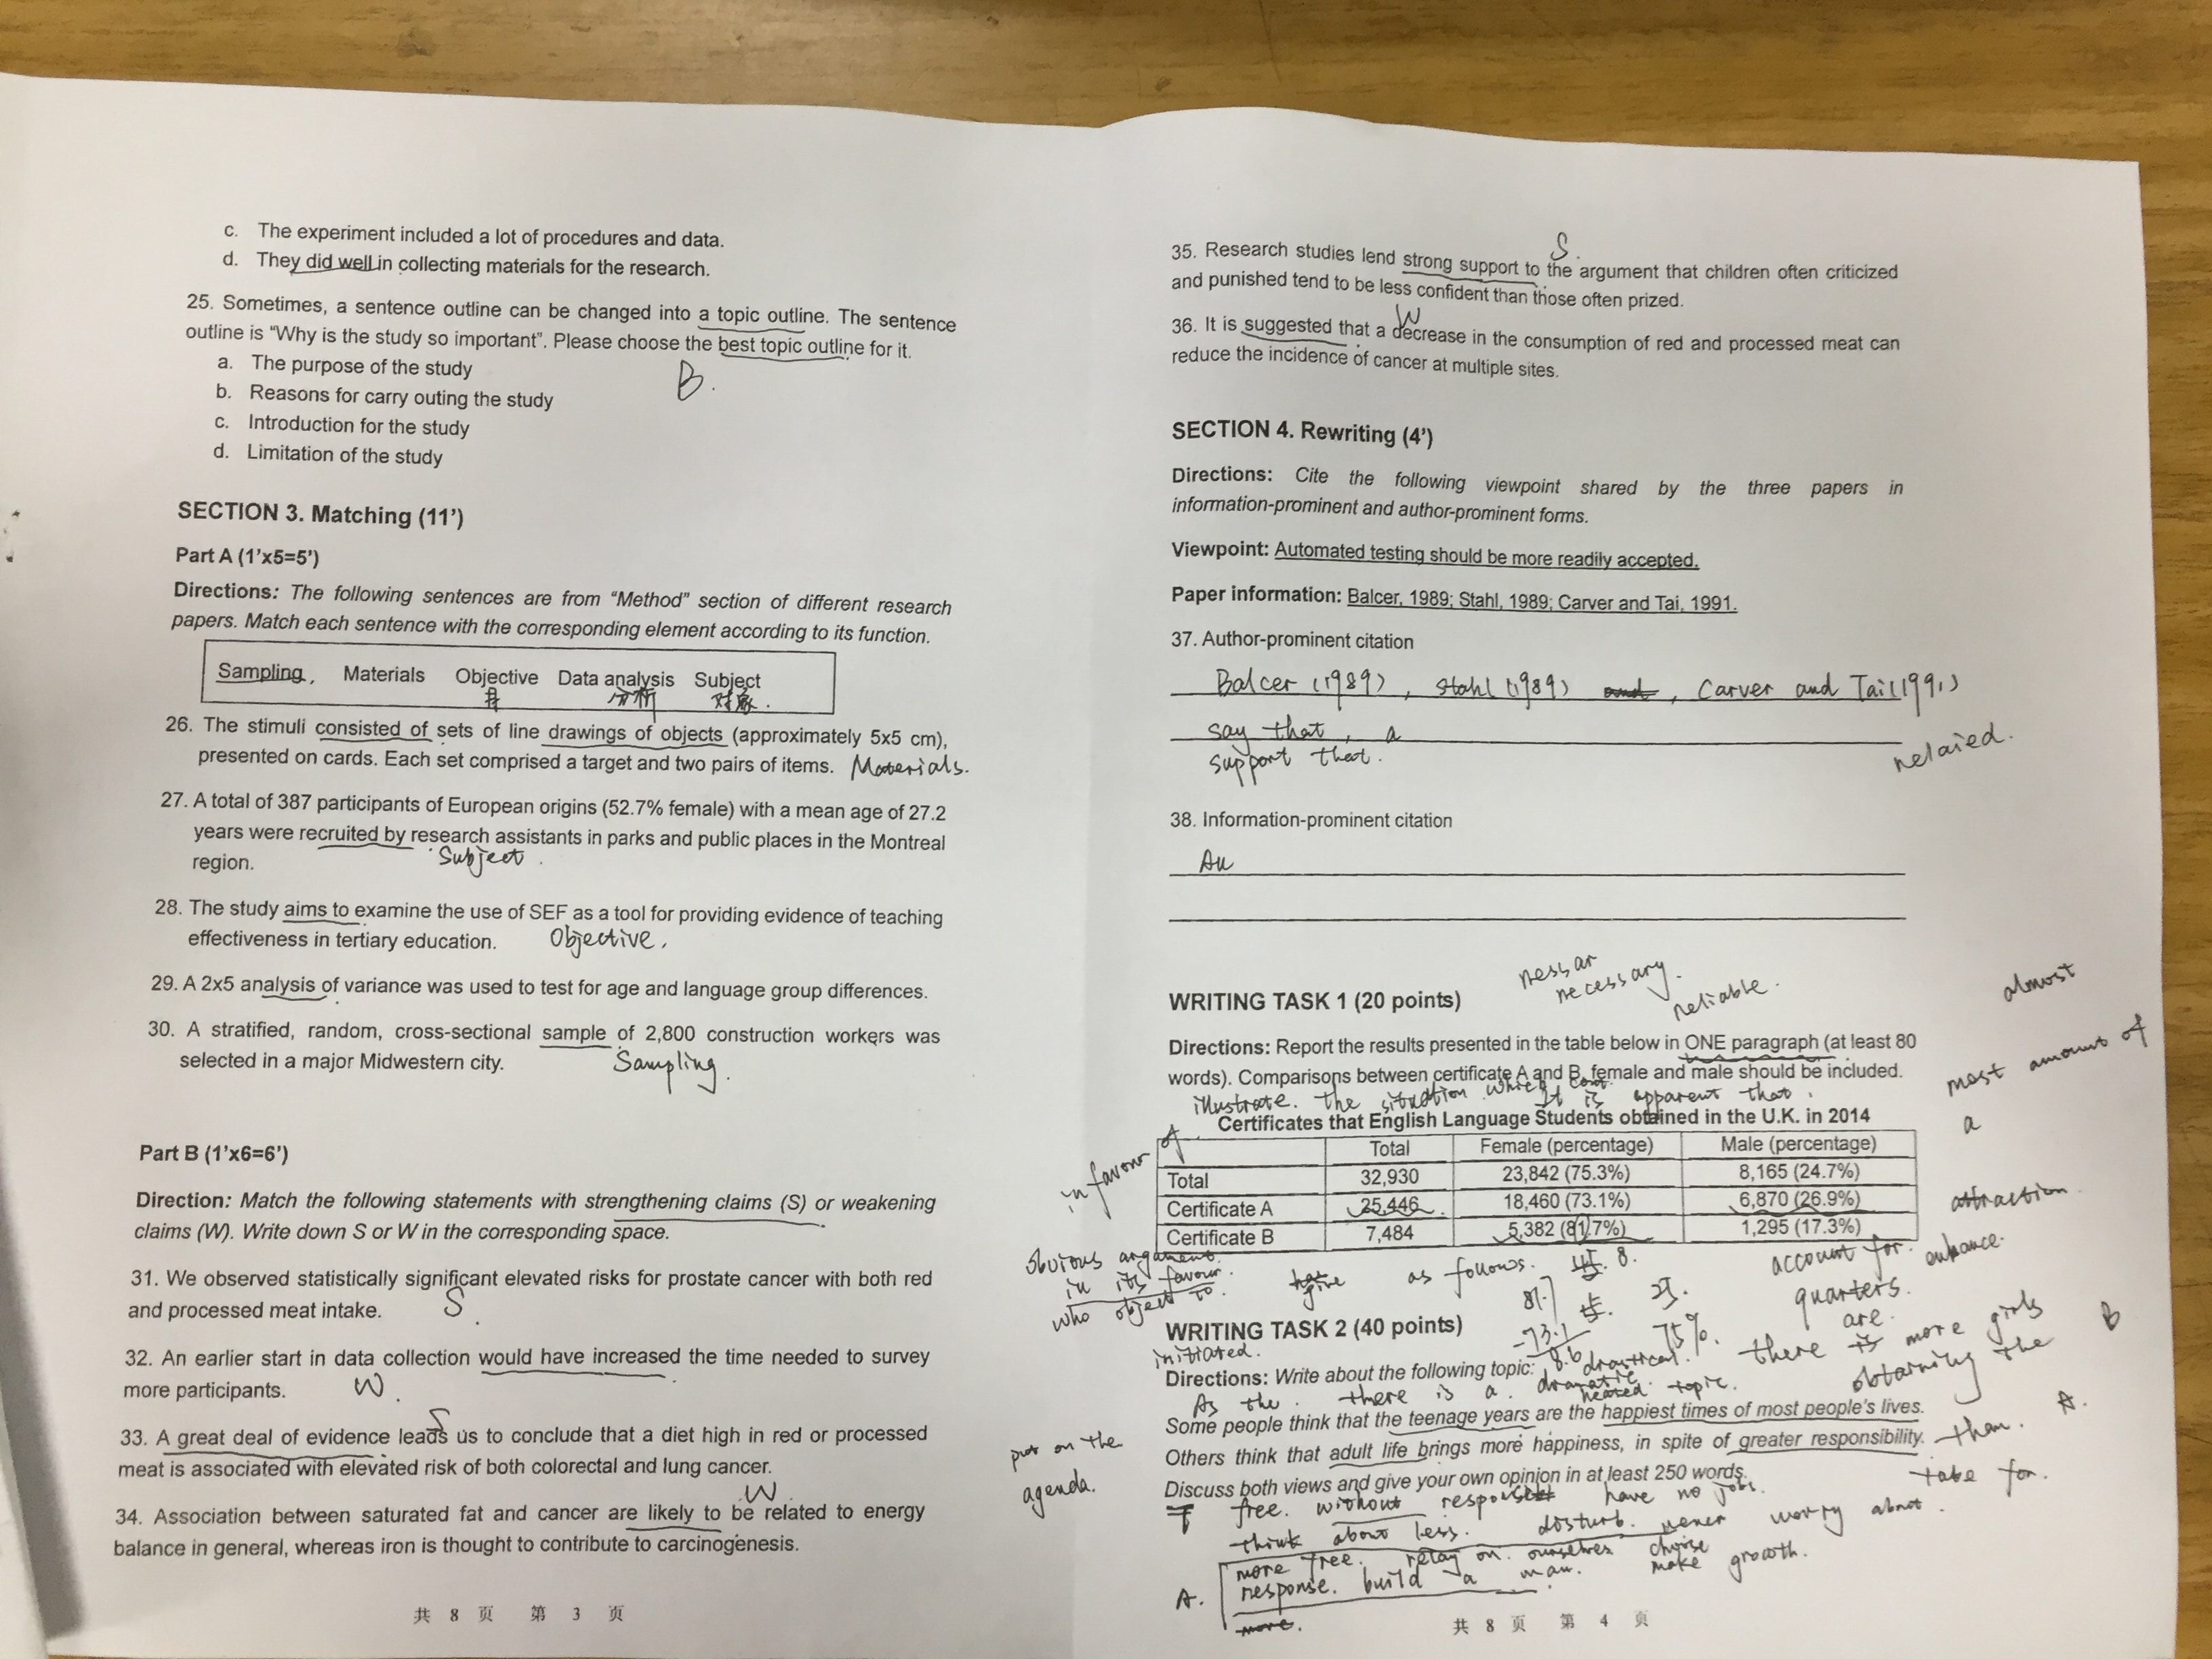 c. The experiment included a lot of procedures and data.
d. They did well in collecting materials for the research.
25. Sometimes, a sentence outline can be changed into a topic outline. The sentence
outline is “Why is the study so important”. Please choose the best topic outline for it.
a. The purpose of the study
B.
b. Reasons for carry outing the study
c. Introduction for the study
d. Limitation of the study
SECTION 3. Matching (11’)
Part A (1’x5=5’)
Directions: The following sentences are from “Method” section of different research
papers. Match each sentence with the corresponding element according to its function.
Sampling, Materials Objective Data analysis Subject
分析 对象.
26. The stimuli consisted of sets of line drawings of objects (approximately 5x5 cm),
presented on cards. Each set comprised a target and two pairs of items. Materials.
27. A total of 387 participants of European origins (52.7% female) with a mean age of 27.2
years were recruited by research assistants in parks and public places in the Montreal
region. Subject.
28. The study aims to examine the use of SEF as a tool for providing evidence of teaching
effectiveness in tertiary education. Objective.
29. A 2x5 analysis of variance was used to test for age and language group differences.
30. A stratified, random, cross-sectional sample of 2,800 construction workers was
selected in a major Midwestern city. Sampling.
Part B (1’x6=6’)
Direction: Match the following statements with strengthening claims (S) or weakening
claims (W). Write down S or W in the corresponding space.
31. We observed statistically significant elevated risks for prostate cancer with both red
and processed meat intake. S.
32. An earlier start in data collection would have increased the time needed to survey
more participants. W.
S
33. A great deal of evidence leads us to conclude that a diet high in red or processed
meat is associated with elevated risk of both colorectal and lung cancer.
W
34. Association between saturated fat and cancer are likely to be related to energy
balance in general, whereas iron is thought to contribute to carcinogenesis.
共 8 页 第 3 页
S.
35. Research studies lend strong support to the argument that children often criticized
and punished tend to be less confident than those often prized.
W
36. It is suggested that a decrease in the consumption of red and processed meat can
reduce the incidence of cancer at multiple sites.
SECTION 4. Rewriting (4’)
Directions: Cite the following viewpoint shared by the three papers in
information-prominent and author-prominent forms.
Viewpoint: Automated testing should be more readily accepted.
Paper information: Balcer, 1989; Stahl, 1989; Carver and Tai, 1991.
37. Author-prominent citation
Balcer (1989), Stahl (1989) and, Carver and Tai (1991)
say that, a
support that.
38. Information-prominent citation
Au
nessar
necessary.
reliable.
almost
WRITING TASK 1 (20 points)
most amount of
Directions: Report the results presented in the table below in ONE paragraph (at least 80
words). Comparisons between certificate A and B, female and male should be included.
illustrate. the situation which
It is apparent that.
a
Certificates that English Language Students obtained in the U.K. in 2014
in favour of
Total Female (percentage) Male (percentage)
Total 32,930 23,842 (75.3%) 8,165 (24.7%)
Certificate A 25,446 18,460 (73.1%) 6,870 (26.9%)
attraction
Certificate B 7,484 5,382 (81.7%) 1,295 (17.3%)
obvious argument.
in its favour.
who object to.
give as follows.
account for. enhance.
quarters.
81.7
-73.1
8.6
75%.
WRITING TASK 2 (40 points)
initiated.
are.
there is more girls
obtaining the B
than. A.
Directions: Write about the following topic:
As the. there is a. dramatic.
heated topic.
Some people think that the teenage years are the happiest times of most people’s lives.
Others think that adult life brings more happiness, in spite of greater responsibility.
Discuss both views and give your own opinion in at least 250 words.
put on the
agenda.
take for.
free. without have no jobs.
think about less. disturb. never worry about.
more free. relay on. ourselves choise
A. response. build a man. make growth.
more.
共 8 页 第 4 页